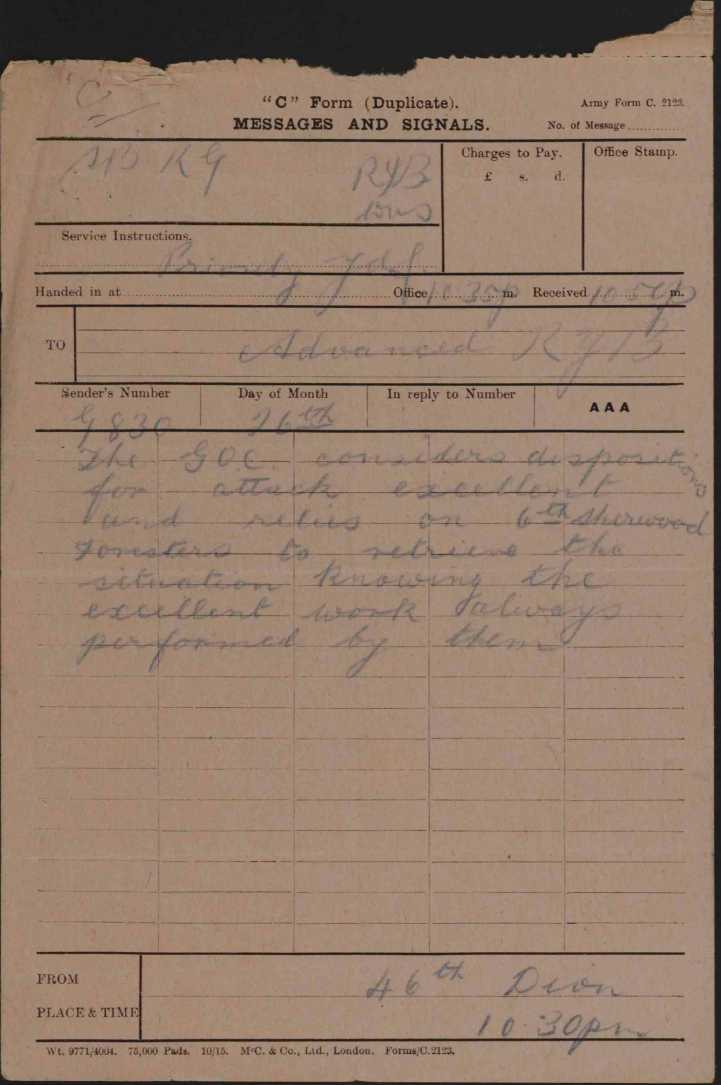 C
"C" Form (Duplicate).
Army Form C. 2123.
MESSAGES AND SIGNALS.
No. of Message
Charges to Pay.
Office Stamp.
£ s. d.
RYB
Service Instructions.
Priority
Handed in at Office 10.35p m. Received m.
TO
Advanced RYB
Sender's Number
Day of Month
In reply to Number
AAA
G830
26th
The GOC. considers dispositions
for attack excellent
and relies on 6th Sherwood
Foresters to retrieve the
situation knowing the
excellent work always
performed by them
FROM
46th Divn
PLACE & TIME
10.30pm
Wt. 9771/4004. 75,000 Pads. 10/15. McC. & Co., Ltd., London. Forms/C.2123.